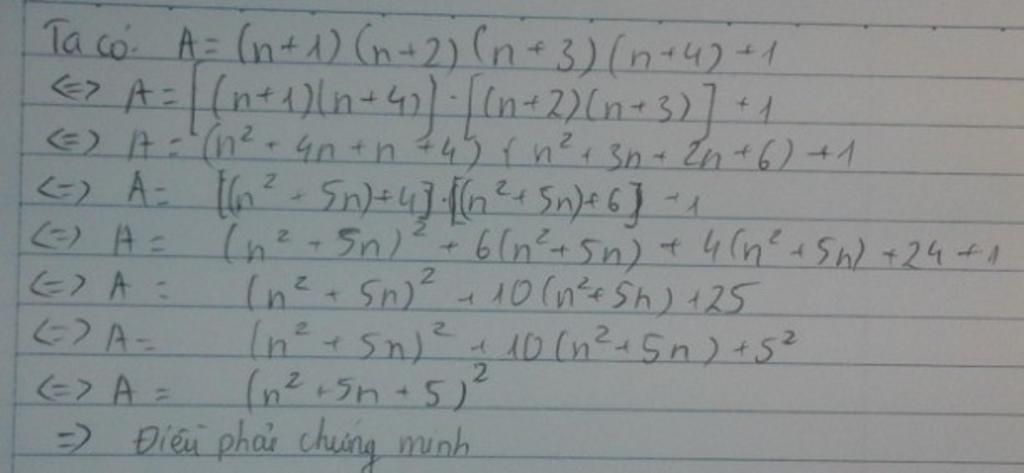 Ta có: A = (n+1)(n+2)(n+3)(n+4)+1
<=> A = [(n+1)(n+4)].[(n+2)(n+3)]+1
<=> A = (n²+4n+n+4)(n²+3n+2n+6)+1
<=> A = [(n²+5n)+4].[(n²+5n)+6]+1
<=> A = (n²+5n)²+6(n²+5n)+4(n²+5n)+24+1
<=> A = (n²+5n)²+10(n²+5n)+25
<=> A = (n²+5n)²+10(n²+5n)+5²
<=> A = (n²+5n+5)²
=> Điều phải chứng minh